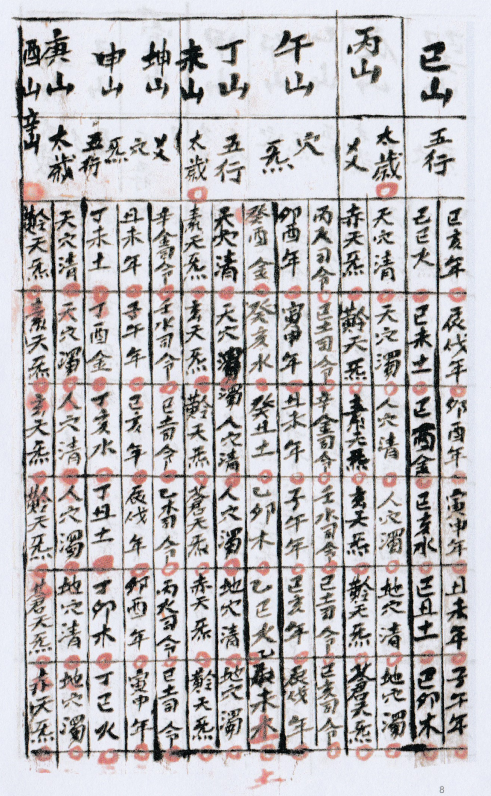 巳山
丙山
午山
丁山
未山
坤山
申山
庚山
酉山
辛山
五行
太歲
爻
穴
炁
五行
太歲
爻
穴
炁
五行
太歲
巳亥年 辰戌年 卯酉年 寅申年 丑未年 子午年
己巳火 己未土 己酉金 己亥水 己丑土 己卯木
天穴清 天穴濁 人穴清 人穴濁 地穴清 地穴濁
赤天炁 黅天炁 素天炁 玄天炁 黅天炁 蒼天炁
丙火司令 己土司令 辛金司令 壬水司令 己土司令 司令
卯酉年 寅申年 丑未年 子午年 巳亥年 辰戌年
癸酉金 癸亥水 癸丑土 乙卯木 乙巳火 乙未水 土
天穴清 天穴濁 人穴清 人穴濁 地穴清 地穴濁
素天炁 玄天炁 黅天炁 蒼天炁 赤天炁 黅天炁
辛金司令 壬水司令 己土司令 乙木司令 丙火司令 己土司令
丑未年 子午年 巳亥年 辰戌年 卯酉年 寅申年
丁未土 丁酉金 丁亥水 丁丑土 丁卯木 丁巳火
天穴清 天穴濁 人穴清 人穴濁 地穴清 地穴濁
黅天炁 素天炁 玄天炁 黅天炁 蒼天炁 赤天炁
8